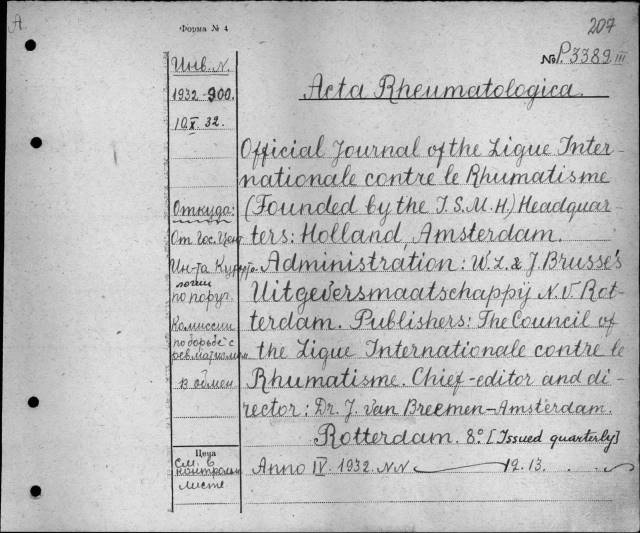 A
Форма № 4
207
No P.3389 III
Инв. N.
1932-900.
10.X.32.
Acta Rheumatologica.
Official Journal of the Ligue Inter-
nationale contre le Rhumatisme
(Founded by the I.S.M.H.) Headquar-
ters: Holland, Amsterdam.
Administration: W.L. & J. Brusse's
Uitgeversmaatschappij N.V. Rot-
terdam. Publishers: The Council of
the Ligue Internationale contre le
Rhumatisme. Chief-editor and di-
rector: Dr. J. van Breemen-Amsterdam.
Rotterdam. 8° [Issued quarterly]
Anno IV. 1932. N.N. 12.13.
Откуда:
От Гос. Цент
Ин-та Курорто-
логии
по поруч.
Комиссии
по борьбе с
ревматизмом
в обмен
Цена
См. в
контрольн
листе